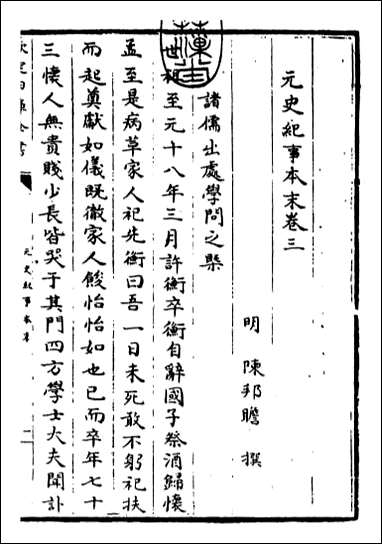 元史紀事本末卷三
明 陳邦瞻 撰
諸儒出處學問之槩
世祖至元十八年三月許衡卒衡自辭國子祭酒歸懷
孟至是病革家人祀先衡曰吾一日未死敢不躬祀扶
而起奠獻如儀既徹家人餕怡怡如也已而卒年七十
三懷人無貴賤少長皆哭于其門四方學士大夫聞訃
元史紀事本末
二